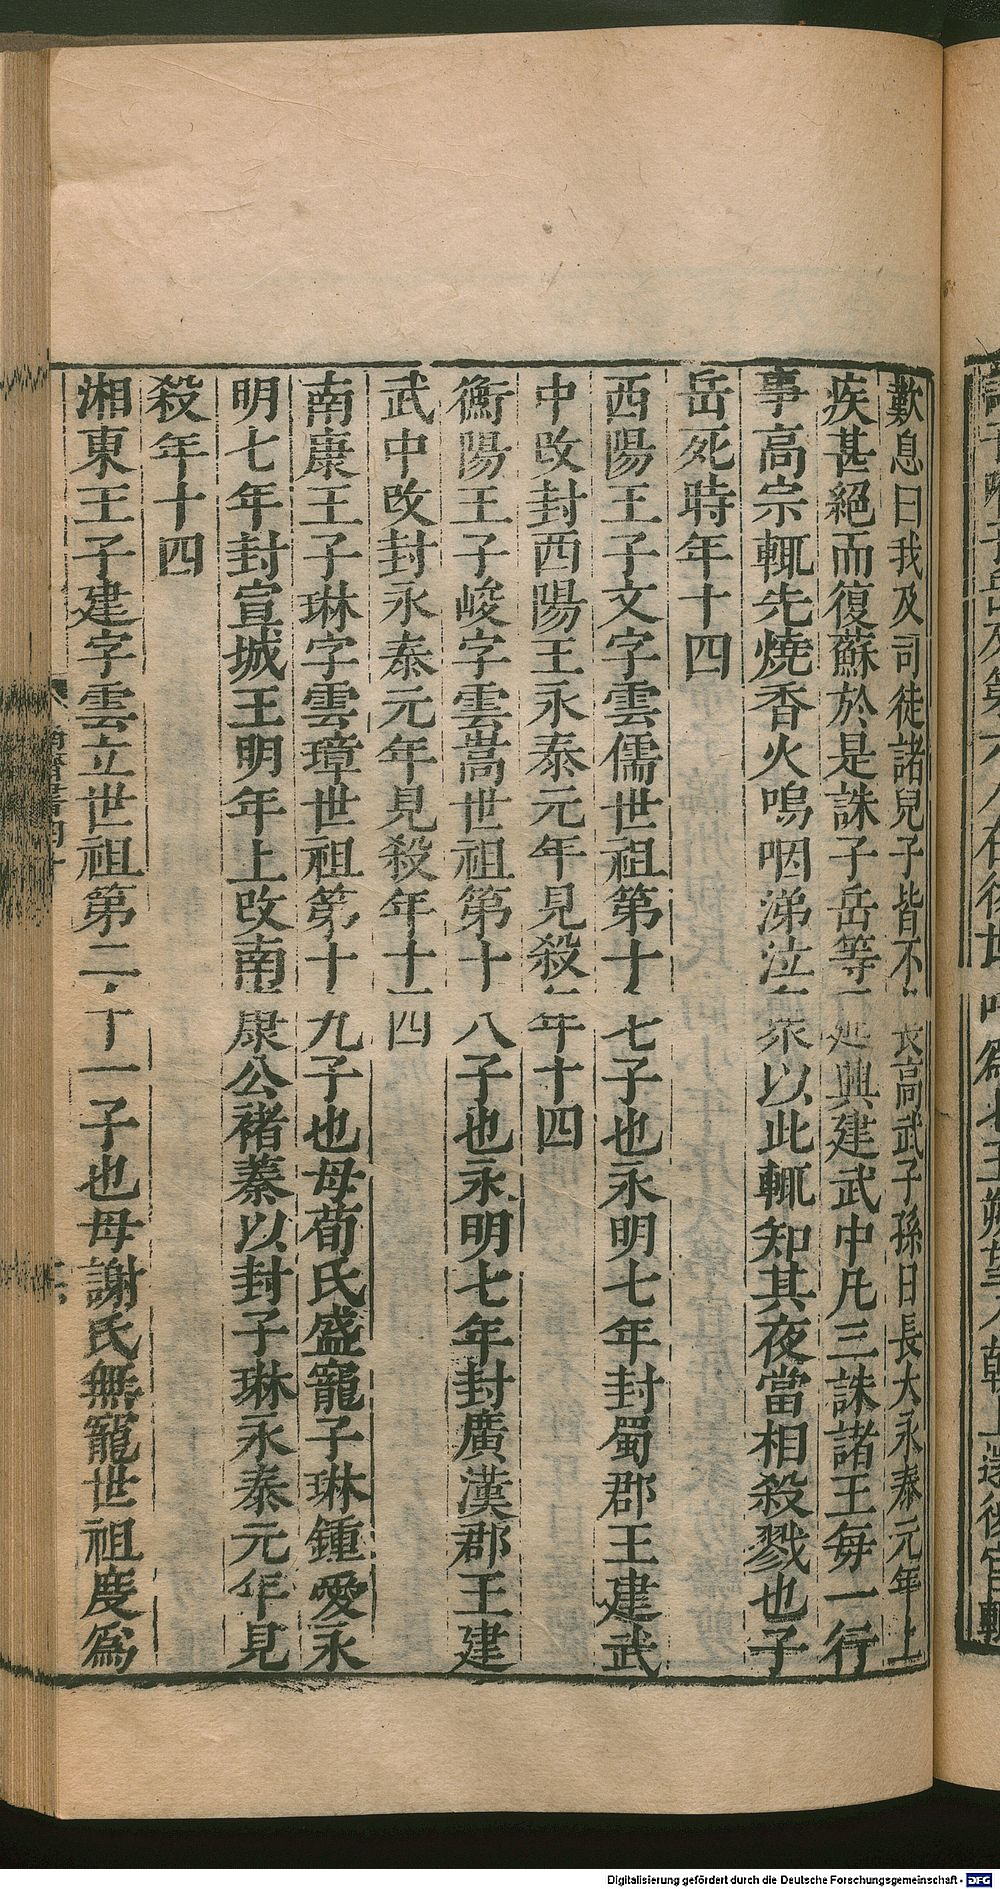 歎息曰我及司徒諸兒子皆不長高武子孫日長大永泰元年上
疾甚絕而復蘇於是誅子岳等延興建武中凡三誅諸王每一行
事高宗輒先燒香火嗚咽涕泣衆以此輒知其夜當相殺戮也子
岳死時年十四
西陽王子文字雲儒世祖第十七子也永明七年封蜀郡王建武
中改封西陽王永泰元年見殺年十四
衡陽王子峻字雲嵩世祖第十八子也永明七年封廣漢郡王建
武中改封永泰元年見殺年十四
南康王子琳字雲璋世祖第十九子也母荀氏盛寵子琳鍾愛永
明七年封宣城王明年上改南康公褚蓁以封子琳永泰元年見
殺年十四
湘東王子建字雲立世祖第二十一子也母謝氏無寵世祖度爲
南齊書四十
Digitalisierung gefördert durch die Deutsche Forschungsgemeinschaft - DFG